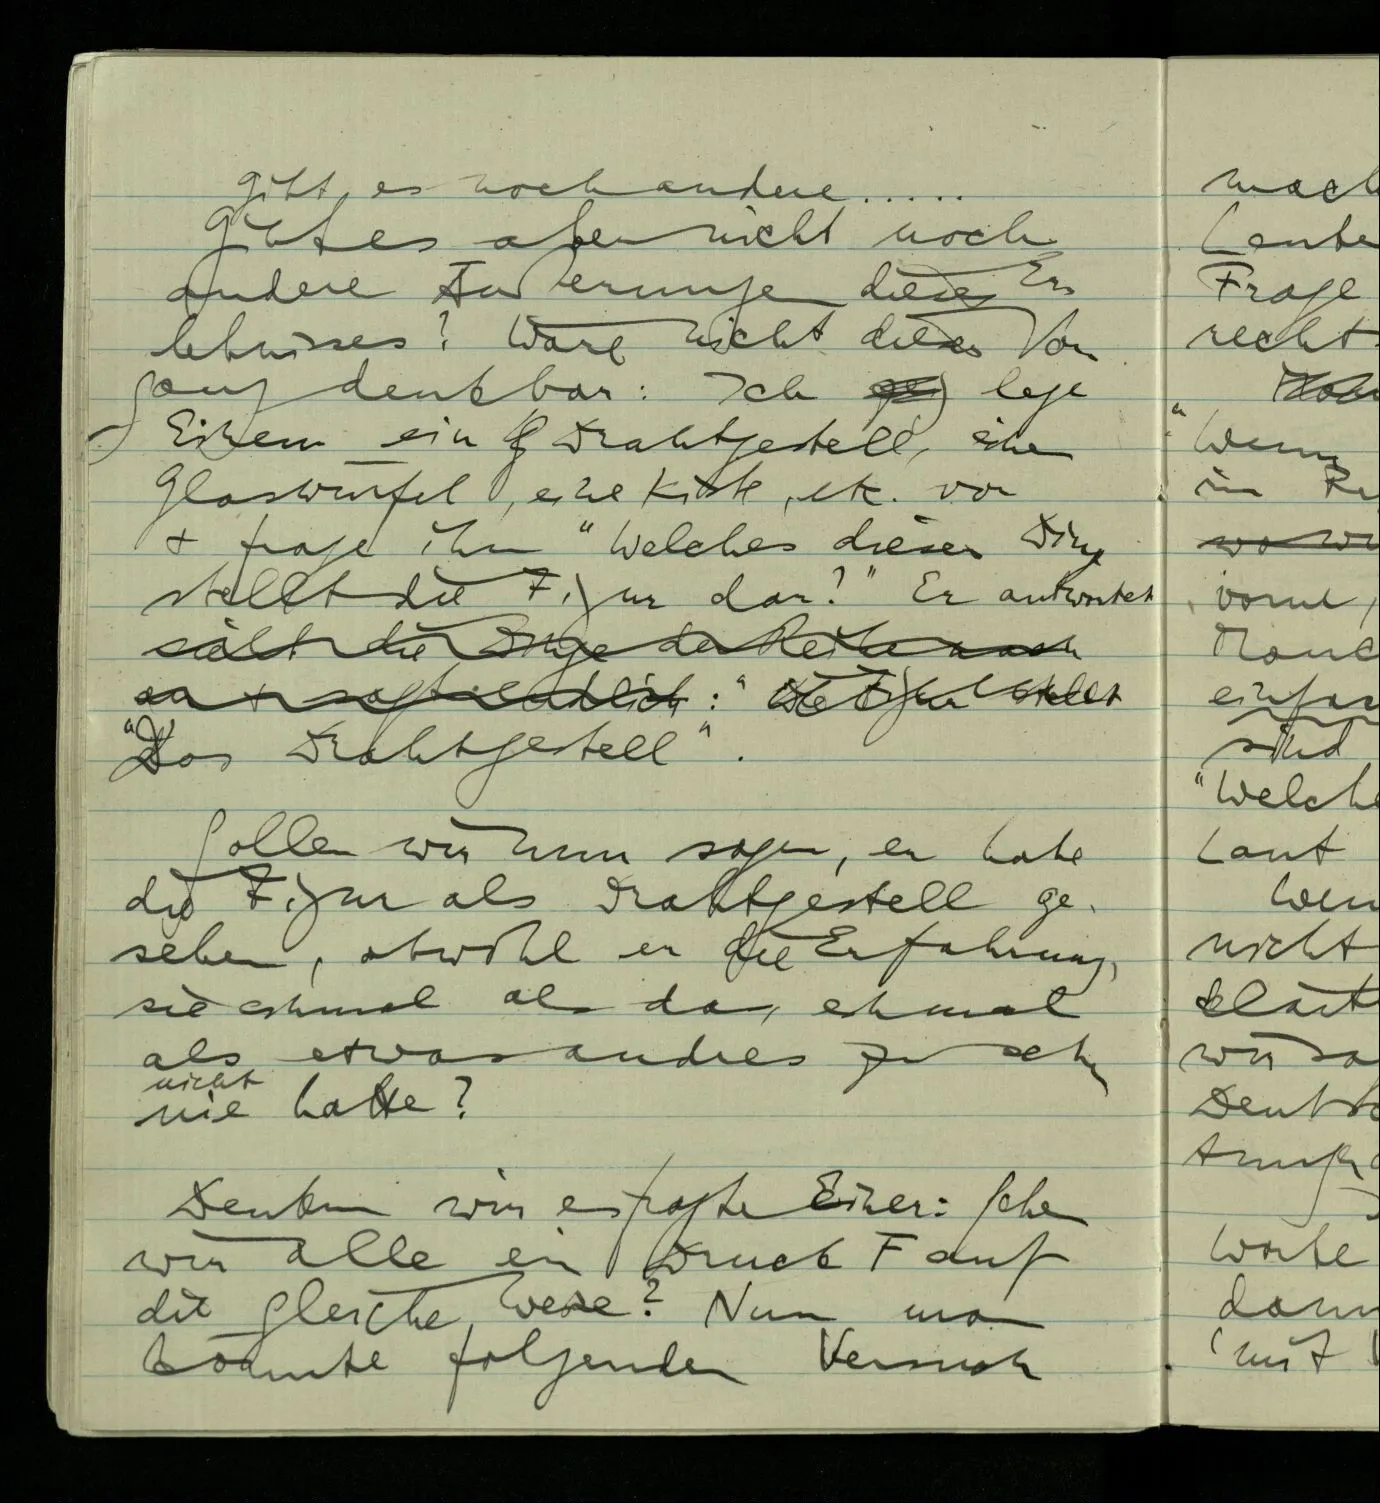 gibt es noch andere.....
Gibt es aber nicht noch
andere Äußerungen dieses Er
lebnisses? Wäre nicht dieser Vor
gang denkbar: Ich lege
Einem ein Drahtgestell, einen
Glaswürfel, eine Kiste, etc. vor
+ frage ihn "Welches dieser Dinge
stellt die Figur dar?" Er antwortet
sieht die Dinge der Reihe nach
an + sagt endlich: "Die Figur stellt
"Das Drahtgestell".
Sollen wir nun sagen, er habe
die Figur als Drahtgestell ge-
sehen, obwohl er die Erfahrung,
sie einmal als das, einmal
als etwas andres zu sehn
nicht
nie hatte?
Denken wir es fragte Einer: Sehen
wir alle ein Druck F auf
die gleiche Weise? Nun man
könnte folgenden Versuch
mach
Leute
Frage
rechts
"Wenn
im
wo wi
vorne,
Manc
einfac
sind
"Welche
Laut
Wen
nicht
klärt
wir sa
Deuts
Worte
dann
'mit